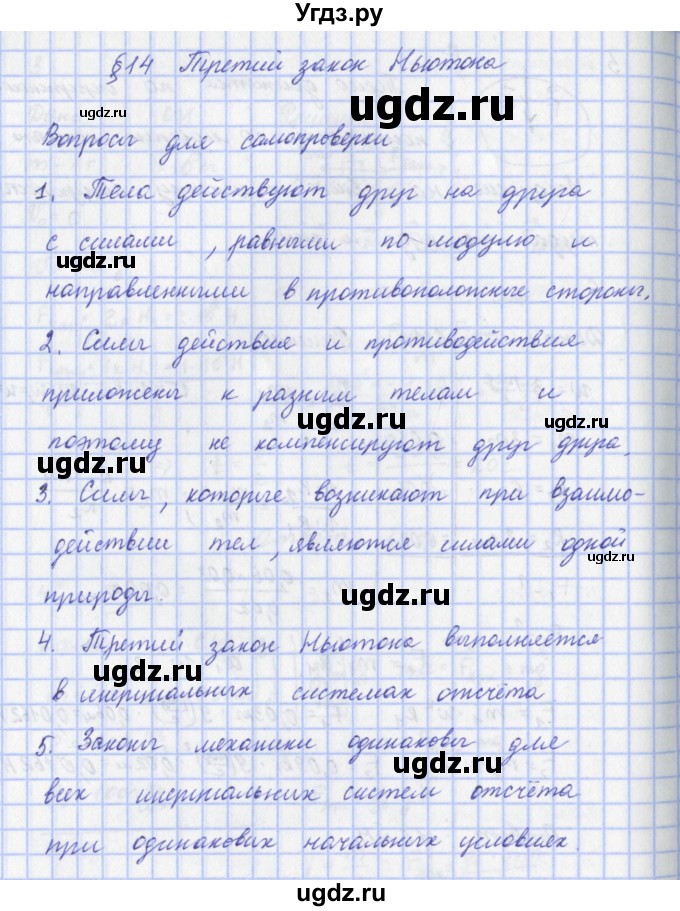 Угдз.ру
§14 Третий закон Ньютона
ugdz.ru
ugdz.ru
Вопросы для самопроверки
ugdz.ru
1. Тела действуют друг на друга
с силами, равными по модулю и
ugdz.ru
ugdz.ru
направленными в противоположные стороны.
2. Силы действия и противодействия
приложены к разным телам и
ugdz.ru
ugdz.ru
поэтому не компенсируют друг друга.
ugdz.ru
3. Силы, которые возникают при взаимо-
действии тел, являются силами одной
ugdz.ru
природы.
ugdz.ru
4. Третий закон Ньютона выполняется
ugdz.ru
в инерциальных системах отсчёта.
5. Законы механики одинаковы для
ugdz.ru
всех инерциальных систем отсчёта
при одинаковых начальных условиях.
ugdz.ru
ugdz.ru